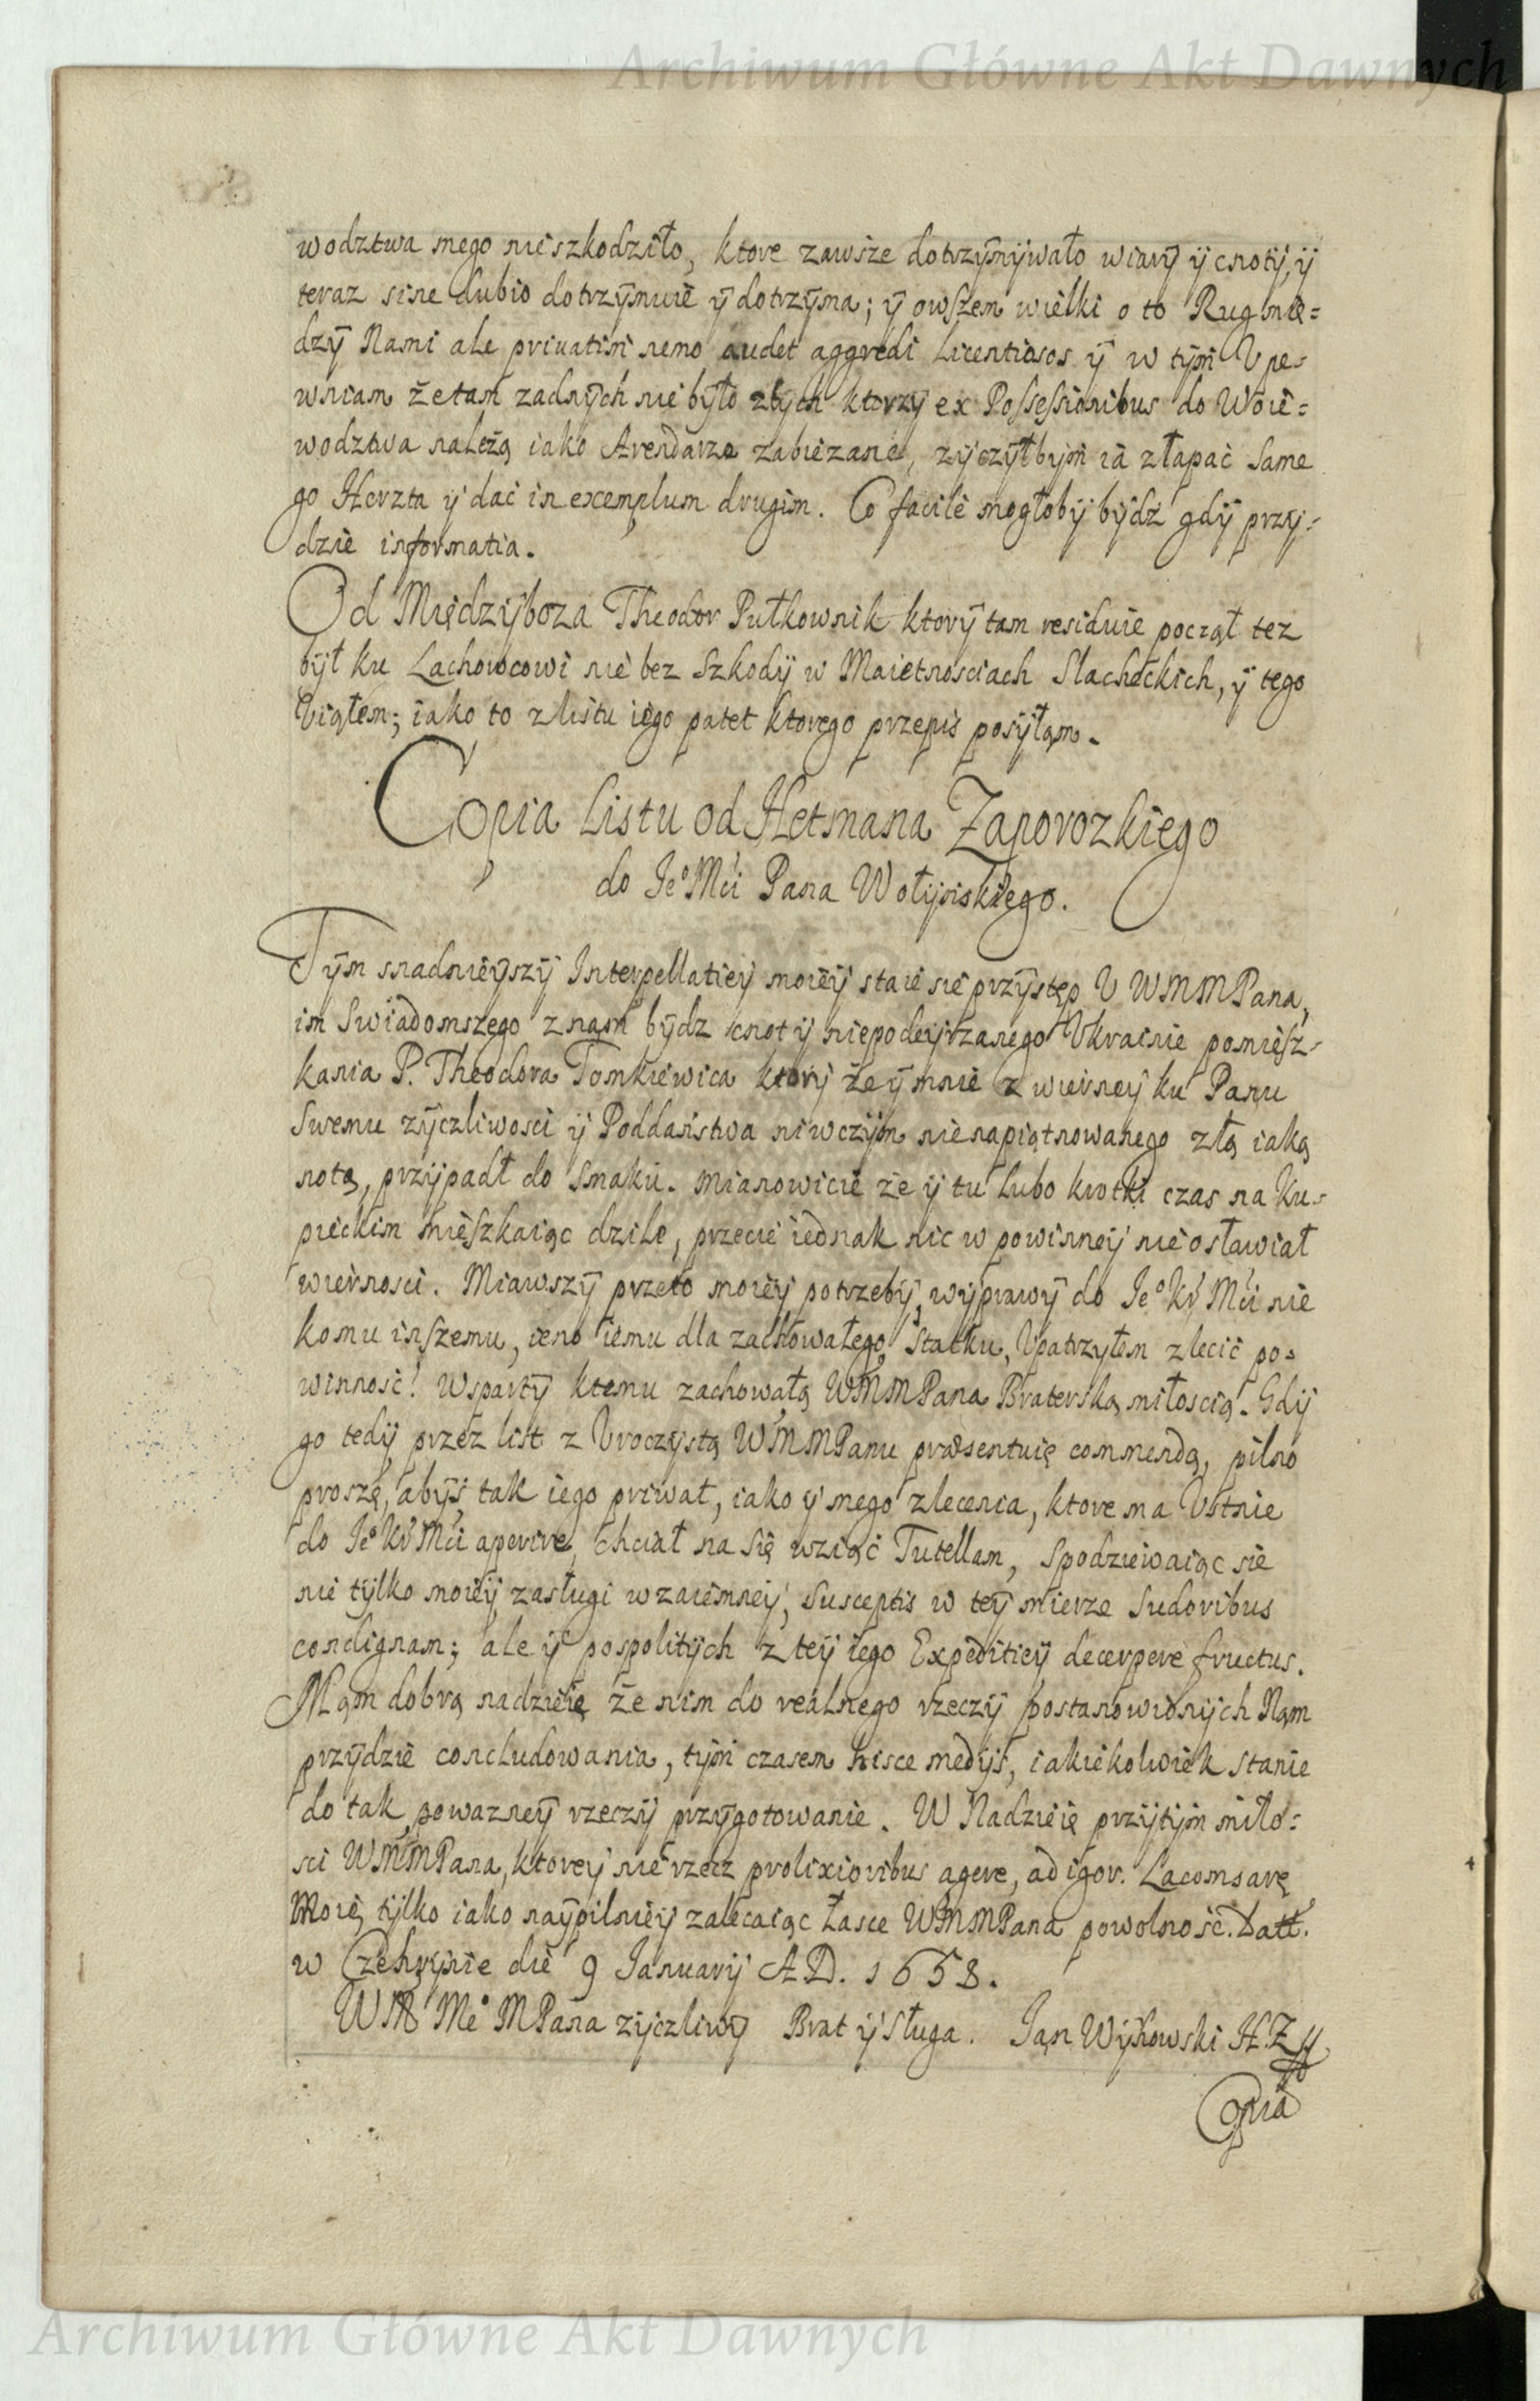 Archiwum Główne Akt Dawnych
wodztwa mego nieszkodziło, ktore zawsze dotrzymywało wiary y cnoty, y
teraz sine dubio dotrzymuie y dotrzyma; y owszem wielki o to Rug mie=
dzy Nami ale priuatim nemo audet aggredi Licentiosos y w tym Vpe-
wniam że tam zadnych nie było złych ktorzy ex Possessionibus do Woie=
wodztwa należą iako Arendarze zabiezane, zyczyłbym ia złapać same
go Herzta y dać in exemplum drugim. Co facile mogłoby bydź gdy przy-
dzie informatia.
Od Międzyboza Theodor Pułkownik ktory tam residuie począł tez
był ku Lachowcowi nie bez szkody w Maietnosciach Slacheckich, y tego
Viąłem; iako to z listu iego patet ktorego przepis posyłam.
Copia Listu od Hetmana Zaporozkiego
do Je° Mći Pana Wołyńskiego.
Tym snadnieyszy Interpellatiey moiey staie sie przystęp V WMMPana,
im Swiadomszego znam bydz cnoty niepodeyrzanego Vkrainie pomiesz-
kania P. Theodora Tomkiewica ktory że y mnie z wierney ku Panu
Swemu zyczliwosci y Poddaństwa niwczym nie napiątnowanego złą iaką
notą, przypadł do smaku. mianowicie że y tu lubo krotki czas na Ku-
pieckim mieszkaiąc dzile, przecie iednak nic w powinney nie osławiał
wiernosci. Miawszy przeto moiey potrzeby, wyprawy do Je° Kr Mći nie
komu inszemu, ieno iemu dla zachowałego statku, Vpatrzyłem zlecić po=
winność! Wsparty ktemu zachowałą WMMPana Braterską miłoscią. Gdy
go tedy przez list z Vroczystą WMMPanu præsentuię commendą, pilno
proszę, abyś tak iego priwat, iako y mego zlecenia, ktore ma Vstnie
do Je° Kr Mći aperire, chciał na się wziąć Tutellam, spodziewaiąc sie
nie tylko moiey zasługi wzaiemney, susceptis w tey mierze Sudoribus
condignam; ale y pospolitych z tey iego Expeditiey decerpere fructus.
Mąm dobrą nadzieię że nim do realnego rzeczy postanowionych Nąm
przydzie concludowania, tym czasem hisce medijs, iakiekolwiek stanie
do tak powazney rzeczy przygotowanie. W Nadzieię przytym miło=
sci WMMPana, ktorey nie rzecz prolixioribus agere, ad igor. Lacomsarę
Moię, tylko iako naypilniey zalecaiąc Łasce WMMPana powolność. Datt.
w Czehrynie die 9 Januarij A D. 1658.
WM Me° MPana zyczliwy Brat y Sługa. Jąn Wyhowski H. Z
Copia
Archiwum Główne Akt Dawnych